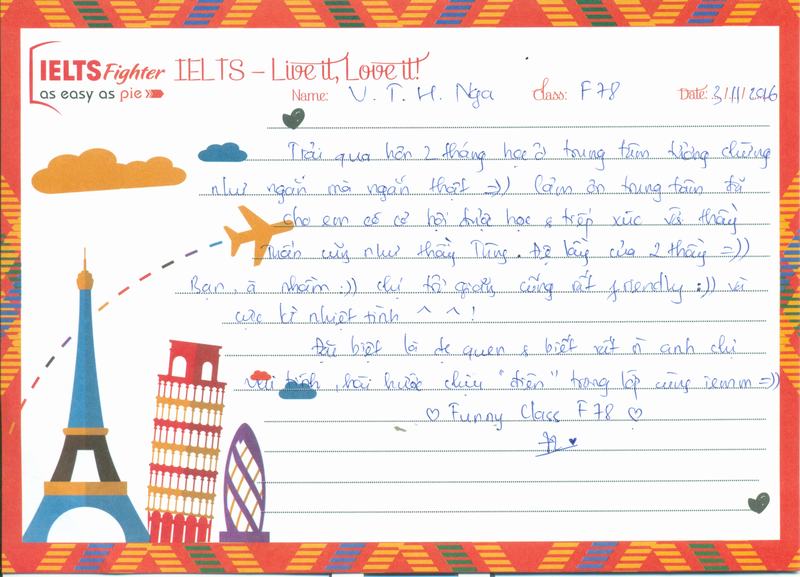 IELTS Fighter
as easy as pie
IELTS – Live it, Love it!
Name: V. T. H. Nga Class: F78 Date: 3/11/2016
Trải qua hơn 2 tháng học ở trung tâm tưởng chừng
như ngắn mà ngắn thật =)) Cảm ơn trung tâm đã
cho em có cơ hội được học & tiếp xúc với thầy
Tuấn cũng như thầy Tùng. Độ lầy của 2 thầy =))
Bạn, à nhầm :)) chị trợ giảng cũng rất friendly :)) và
cực kì nhiệt tình ^ ^ !
Đặc biệt là đc quen & biết rất n anh chị
vui tính, hài hước chịu "điên" trong lớp cùng iemm =))
♡ Funny Class F78 ♡